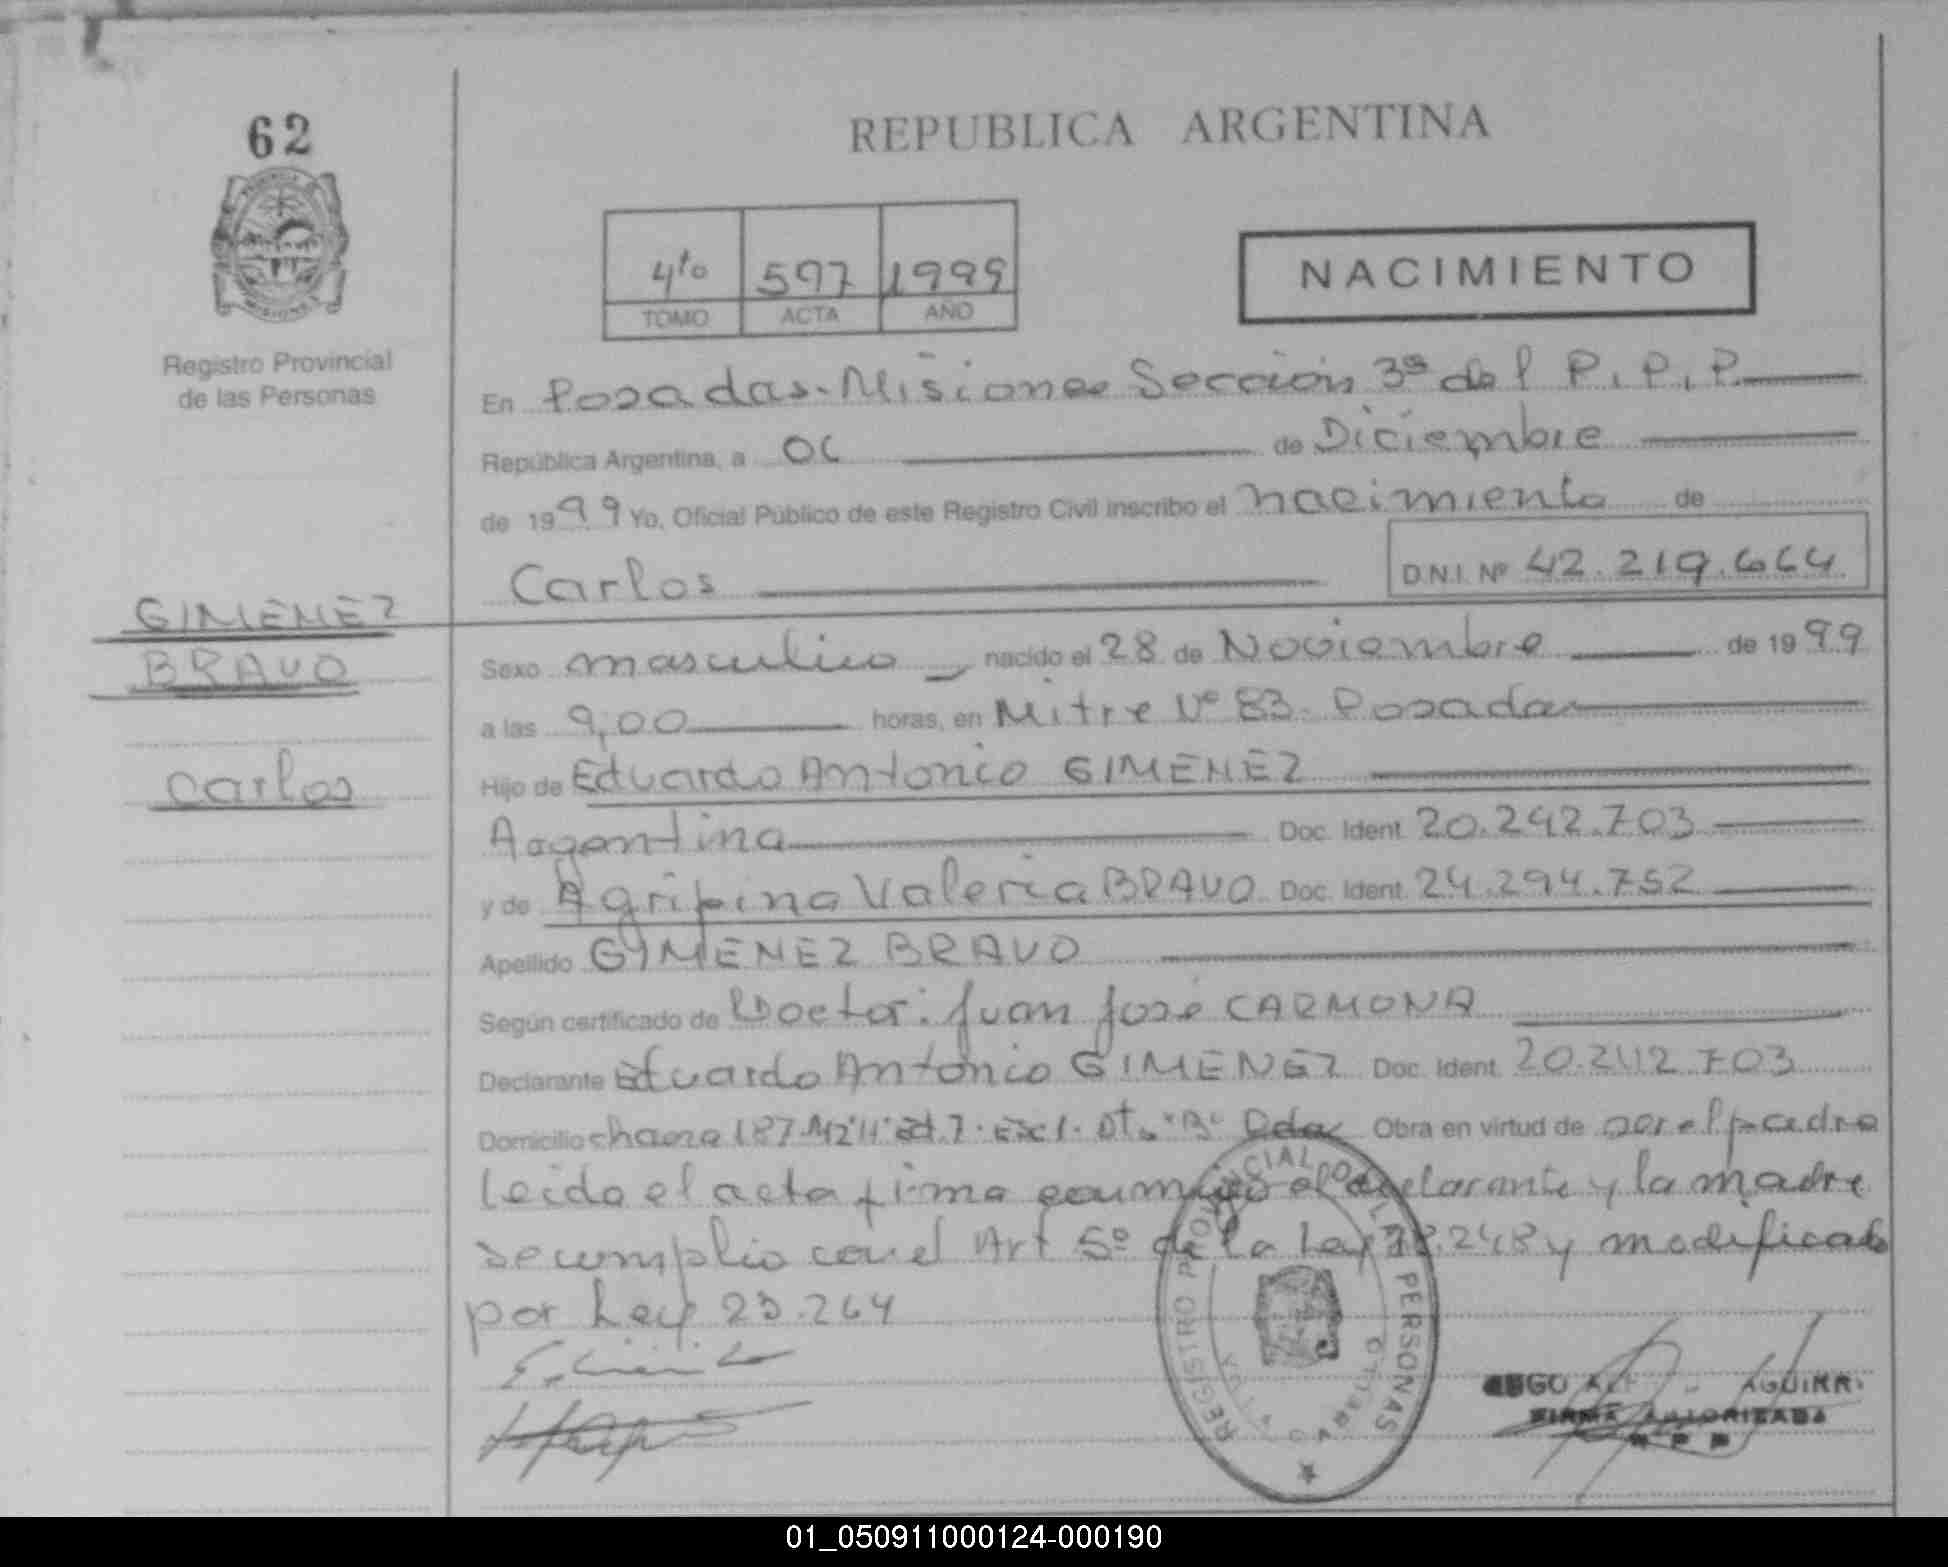 62
REPUBLICA ARGENTINA
4to 597 1999
TOMO ACTA AÑO
NACIMIENTO
Registro Provincial
de las Personas
En Posadas-Misiones Sección 3ª del P.P.P.
República Argentina, a 06 de Diciembre
de 1999 Yo, Oficial Público de este Registro Civil inscribo el nacimiento de
Carlos D.N.I. Nº 42.219.664
GIMENEZ
BRAVO
Carlos
Sexo masculino nacido el 28 de Noviembre de 1999
a las 9,00 horas, en Mitre Nº 83. Posadas
Hijo de Eduardo Antonio GIMENEZ
Argentina Doc. Ident. 20.242.703
y de Agripina Valeria BRAVO Doc. Ident. 24.294.752
Apellido GIMENEZ BRAVO
Según certificado de Doctor: Juan José CARMONA
Declarante Eduardo Antonio GIMENEZ Doc. Ident. 20.242.703
Domicilio chacra 187 Obra en virtud de ser el padre
Leido el acta firma conmigo el declarante y la madre
se cumplio con el Art 5º de la Ley 18.248 y modificado
por Ley 23.264
REGISTRO PROVINCIAL DE LAS PERSONAS
AGUIRR
FIRMA AUTORIZADA
01_050911000124-000190